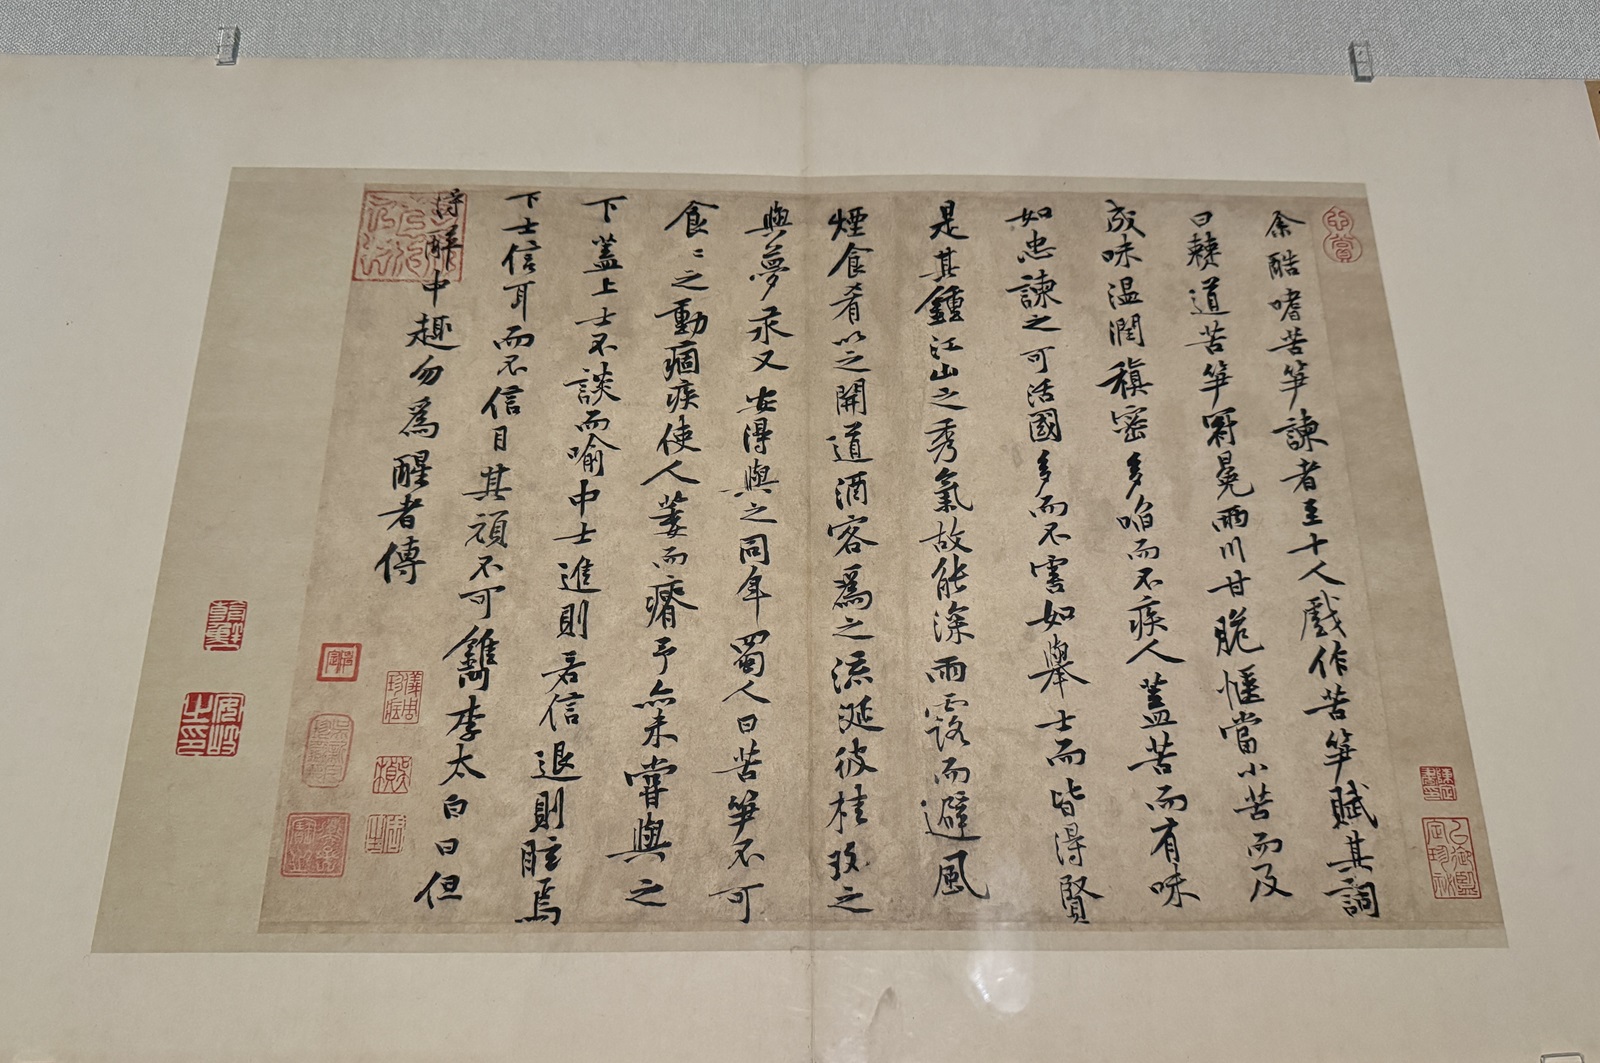 余酷嗜苦笋諫者至十人戲作苦笋賦其詞
曰僰道苦笋冠冕兩川甘脆愜當小苦而及
成味温潤稹密多啗而不疾人蓋苦而有味
如忠諫之可活國多而不害如舉士而皆得賢
是其鍾江山之秀氣故能深雨露而避風
煙食肴以之開道酒客為之流涎彼桂玫之
與夢汞又安得與之同年蜀人曰苦笋不可
食〻之動痼疾使人萎而瘠予亦未甞與之
下蓋上士不談而喻中士進則若信退則眩焉
下士信耳而不信目其頑不可鐫李太白曰但
得醉中趣勿為醒者傳